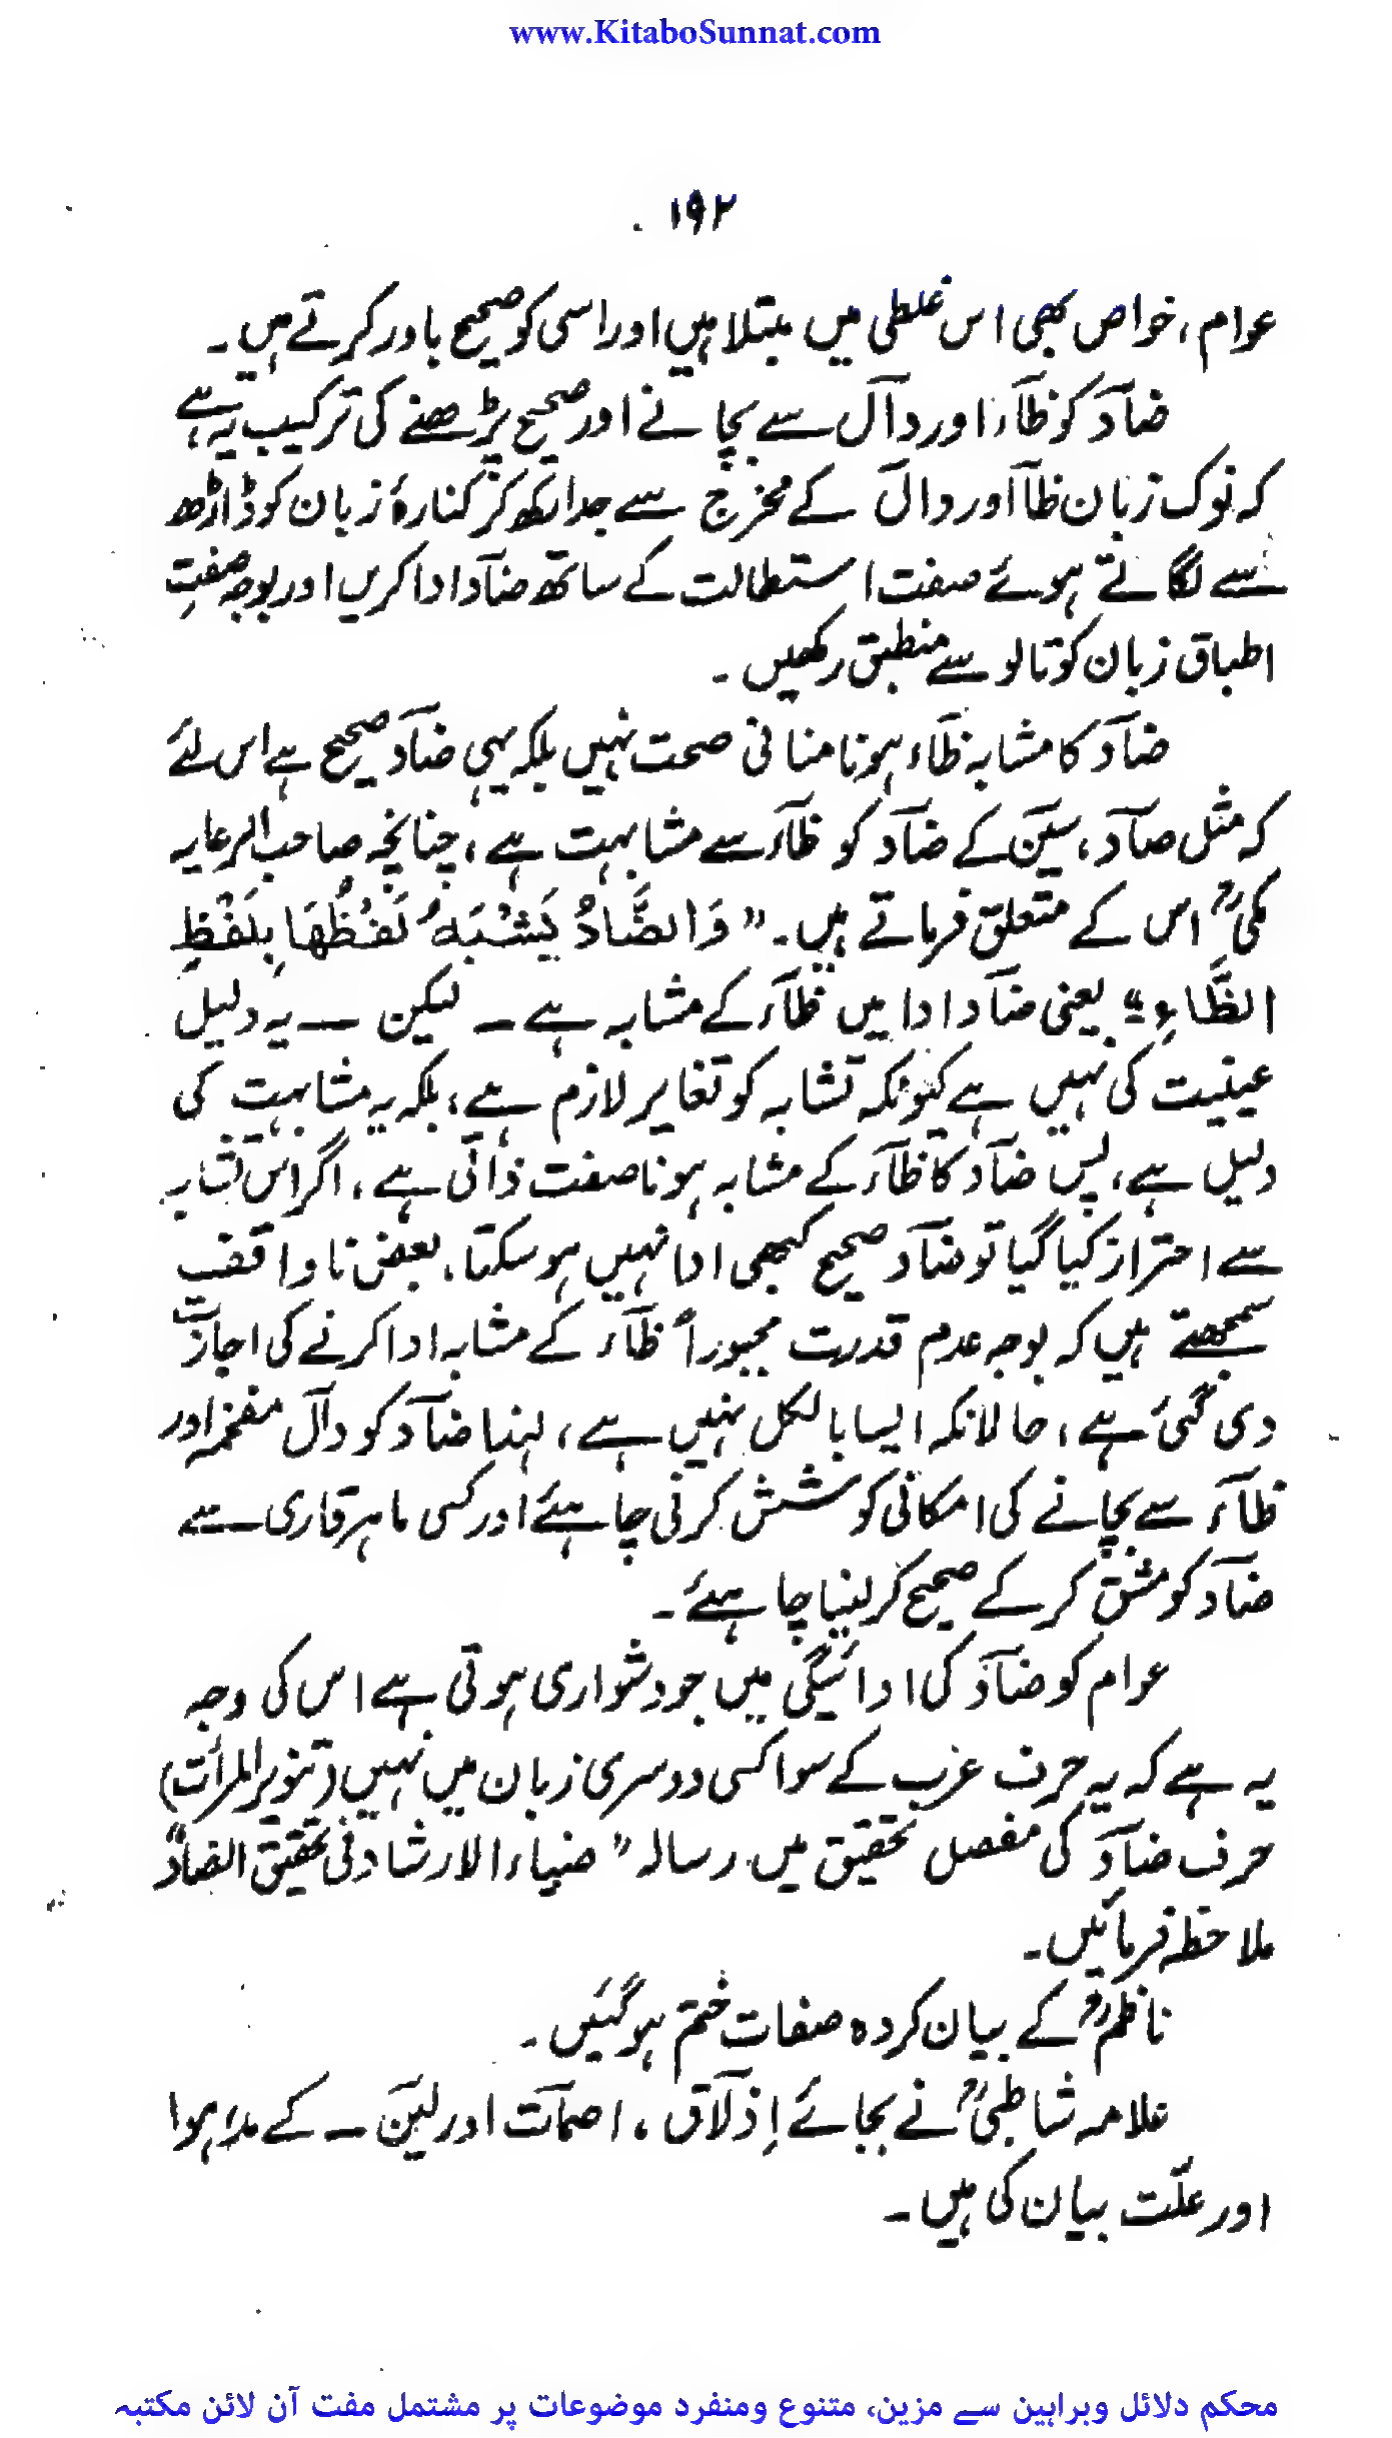 www.KitaboSunnat.com
۱۹۲
عوام، خواص بھی اس غلطی میں مبتلا ہیں اور اسی کو صحیح باور کرتے ہیں۔
ضآد کو ظآء اور دآل سے بچانے اور صحیح پڑھنے کی ترکیب یہ ہے
کہ نوک زبان ظا اور دال کے مخرج سے جدا رکھ کر کنارۂ زبان کو ڈاڑھ
سے لگاتے ہوئے صفت استطالت کے ساتھ ضآد ادا کریں اور بوجہ صفتِ
اطباق زبان کو تالو سے منطبق رکھیں۔
ضآد کا مشابہ ظآء ہونا منافی صحت نہیں بلکہ یہی ضآد صحیح ہے اس لئے
کہ مثل صآد، سیٓن کے ضآد کو ظآء سے مشابہت ہے، چنانچہ صاحب الرعایہ
مکیؒ اس کے متعلق فرماتے ہیں۔ "وَالضَّادُ یَشْبَہُ لَفْظُہَا بِلَفْظِ
الظَّاءِ" یعنی ضآد ادا میں ظآء کے مشابہ ہے ۔ لیکن ۔۔ یہ دلیل
عینیت کی نہیں ہے کیونکہ تشابہ کو تغایر لازم ہے، بلکہ یہ مشابہت کی
دلیل ہے، پس ضآد کا ظآء کے مشابہ ہونا صفت ذاتی ہے، اگر اس تشابہ
سے احتراز کیا گیا تو ضآد صحیح کبھی ادا نہیں ہو سکتا، بعض ناواقف
سمجھتے ہیں کہ بوجہ عدم قدرت مجبوراً ظآء کے مشابہ ادا کرنے کی اجازت
دی گئی ہے، حالانکہ ایسا بالکل نہیں ہے، لہٰذا ضآد کو دآل مفخمہ اور
ظآء سے بچانے کی امکانی کوشش کرنی چاہئے اور کسی ماہر قاری سے
ضآد کو مشق کر کے صحیح کر لینا چاہئے۔
عوام کو ضآد کی ادائیگی میں جو دشواری ہوتی ہے اس کی وجہ
یہ ہے کہ یہ حرف عرب کے سوا کسی دوسری زبان میں نہیں (تنویر المرأت)
حرف ضآد کی مفصل تحقیق میں رسالہ "ضیاء الارشاد فی تحقیق الضاد"
ملاحظہ فرمائیں۔
ناظمؒ کے بیان کردہ صفات ختم ہوگئیں۔
علامہ شاطبیؒ نے بجائے اِذلآق، اصمآت اور لیٓن ۔ کے مد، ہوا
اور علّت بیان کی ہیں۔
محکم دلائل وبراہین سے مزین، متنوع ومنفرد موضوعات پر مشتمل مفت آن لائن مکتبہ